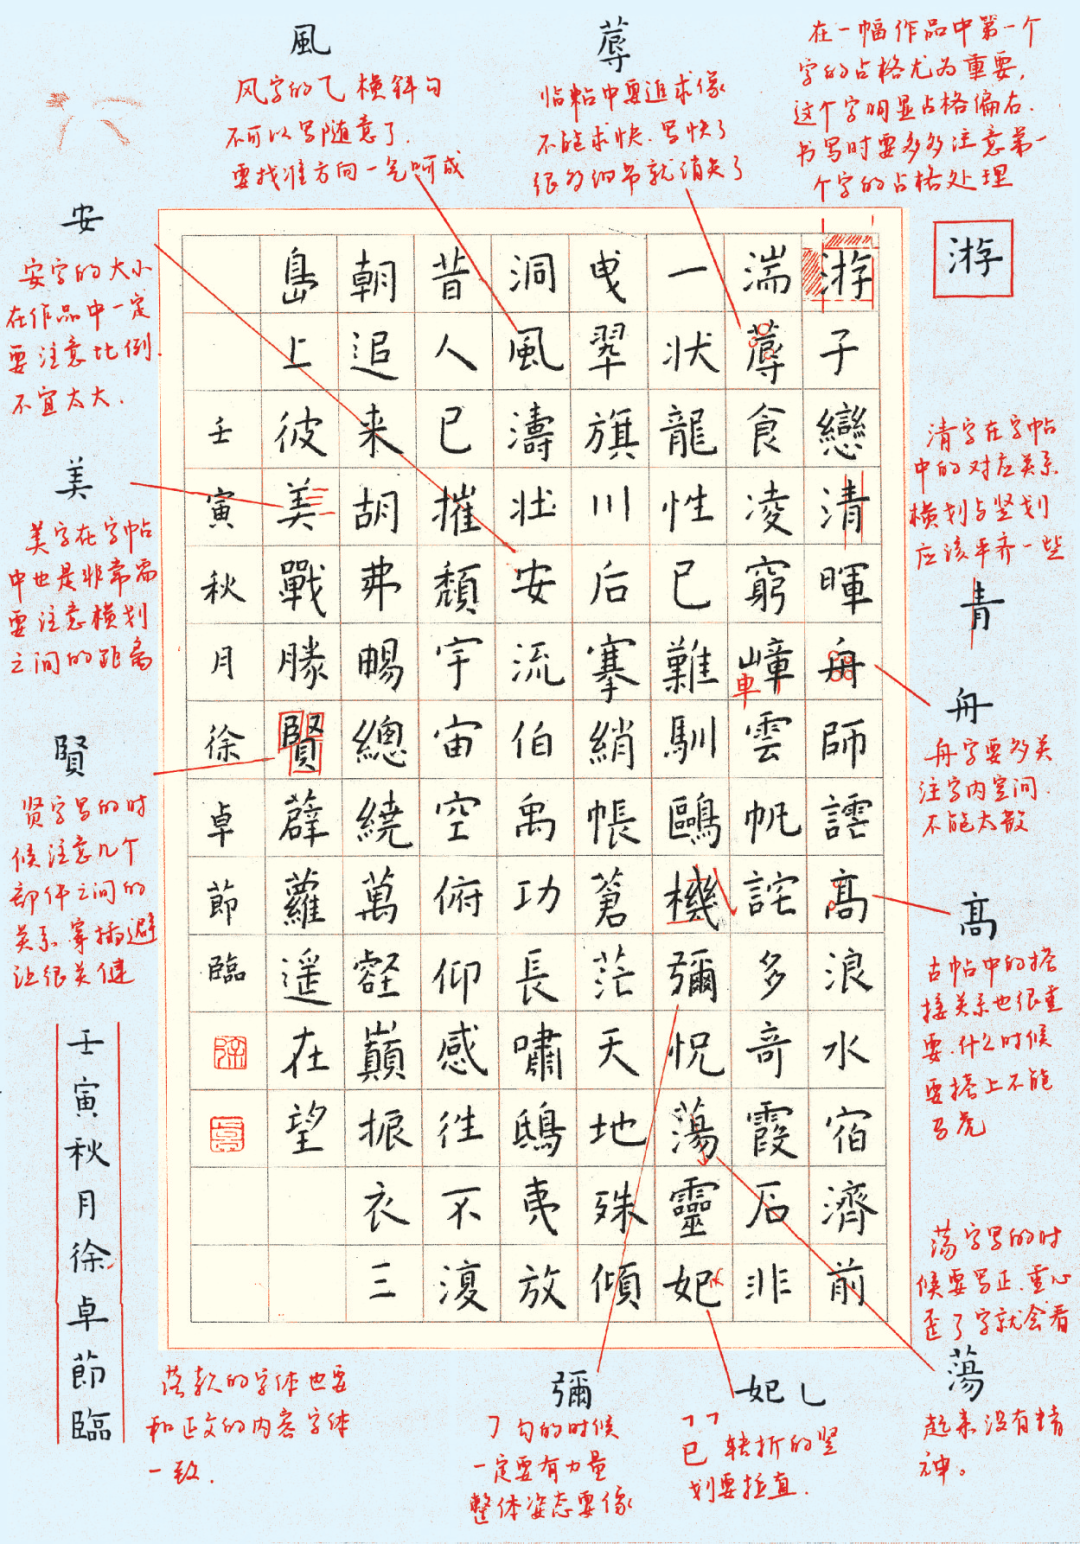 風
风字的乙横斜勾
不可以写随意了.
要找准方向一气呵成
蓐
临帖中要追求像
不能求快.写快了
很多细节就消失了
在一幅作品中第一个
字的占格尤为重要,
这个字明显占格偏右.
书写时要多多注意第一
个字的占格处理
游
安
安字的大小
在作品中一定
要注意比例.
不宜太大.
美
美字在字帖
中也是非常需
要注意横划
之间的距离
賢
贤字写的时
候注意几个
部件之间的
关系.穿插避
让很关键
游子戀清暉舟師謡高浪水宿濟前
湍蓐食凌窮嶂雲帆詫多奇霞石非
車
一狀龍性已難馴鷗機彌怳蕩靈妃
曳翠旗川后搴綃帳蒼茫天地殊傾
洞風濤壮安流伯禹功長嘯鴟夷放
昔人已摧頽宇宙空俯仰感徃不復
朝追来胡弗暢總繞萬壑巔振衣三
島上彼美戰勝賢薜蘿遥在望
壬寅秋月徐卓節臨
清字在字帖
中的对应关系
横划与竖划
应该平齐一些
青
舟
舟字要多关
注字内空间.
不能太散
高
古帖中的搭
接关系也很重
要.什么时候
要搭上不能
马虎
荡字写的时
候要写正.重心
歪了字就会看
蕩
起来没有精
神。
壬寅秋月徐卓節臨
落款的字体也要
和正文的内容字体
一致.
彌
勾的时候
一定要有力量
整体姿态要像
妃
已 转折的竖
划要挺直.